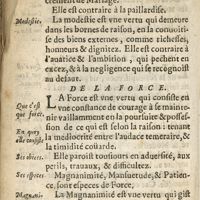 crement de Mariage.
Elle est contraire à la paillardise.
Modestie. La modestie est vne vertu qui demeure
dans les bornes de raison, en la conuoiti-
se des biens externes, comme richesses,
honneurs & dignitez. Elle est contraire à
l'auarice & l'ambition, qui pechent en
excez, & à la negligence qui se recognoist
au defaut.
DE LA FORCE.
Que c'est que force. LA Force est vne vertu qui consiste en
vne constance de courage à se mainte-
nir vaillamment en la poursuitte & posses-
sion de ce qui est selon la raison: tenant
En quoy elle consiste. la mediocrité entre l'audace temeraire, &
la timidité couarde.
Ses offices. Elle paroist tousiours en aduersité, aux
perils, trauaux, & difficultez.
Ses especes. Magnanimité, Mansuetude, & Patien-
ce, sont especes de Force.
Magnani- La Magnanimité est vne vertu qui gist